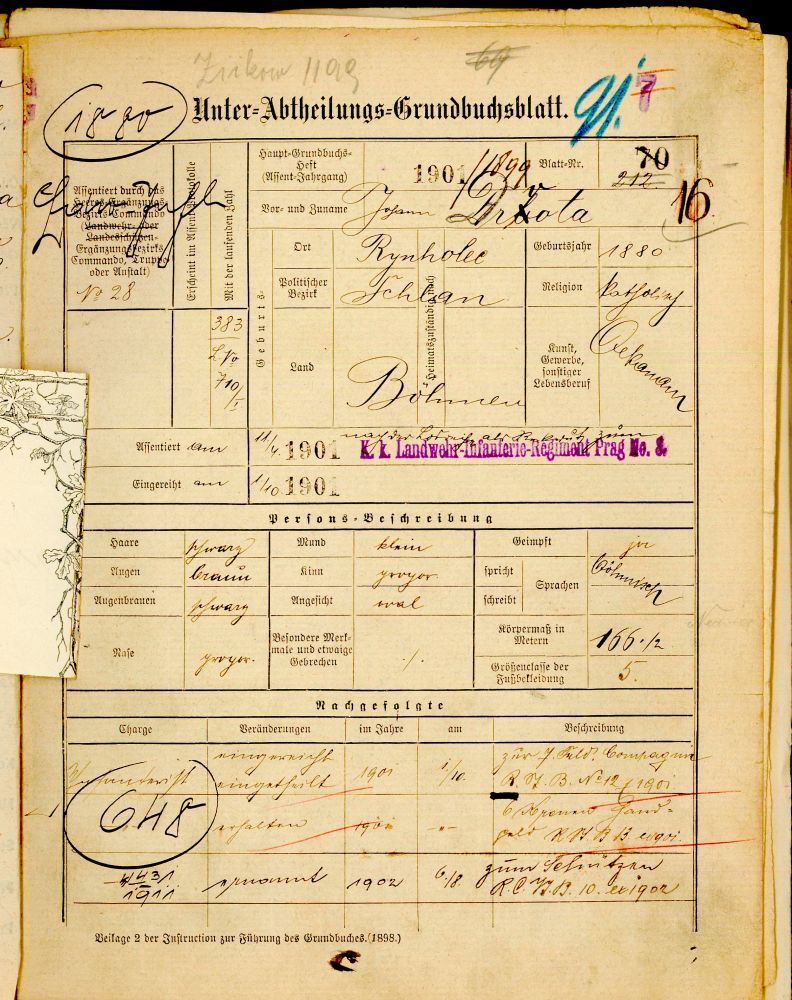 69
1880
Unter-Abtheilungs-Grundbuchsblatt.
91. 7
Assentiert durch das
Heeres-Ergänzungs-
Bezirks-Commando
(Landwehr- oder
Landesschützen-
Ergänzungsbezirks
Commando, Truppe
oder Anstalt)
No 28
Erscheint im Assentprotokolle
Mit der laufenden Zahl
383
710/I
Haupt-Grundbuchs-
Heft
(Assent-Jahrgang)
1901/1899
Blatt-Nr.
70
212
16
Vor- und Zuname
Johann Držota
Geburts-
Ort
Rynholec
Geburtsjahr
1880
Politischer
Bezirk
Schlan
Heimatszuständig nach
Religion
katholisch
Land
Böhmen
Kunst,
Gewerbe,
sonstiger
Lebensberuf
Oekonom
Assentiert am 11/4. 1901
K. k. Landwehr-Infanterie-Regiment Prag No. 8.
Eingereiht am 1/10. 1901
Persons-Beschreibung
Haare schwarz
Mund klein
Geimpft ja
Augen braun
Kinn propor.
spricht
schreibt
Sprachen
böhmisch
Augenbrauen schwarz
Angesicht oval
Nase propor.
Besondere Merk-
male und etwaige
Gebrechen
./.
Körpermaß in
Metern
166 1/2
Größenclasse der
Fußbekleidung
5.
Nachgefolgte
Charge Veränderungen im Jahre am Beschreibung
Infanterist
eingereicht
eingetheilt 1901 1/10. zur 7. Feld. Compagnie
R. II. B. No 12 ex 1901
648
erhalten 1901 -"- 6 Kronen Hand-
geld
4431
1911
ernannt 1902 6/8. zum Schützen
10. ex 1902
Beilage 2 der Instruction zur Führung des Grundbuches. (1898.)